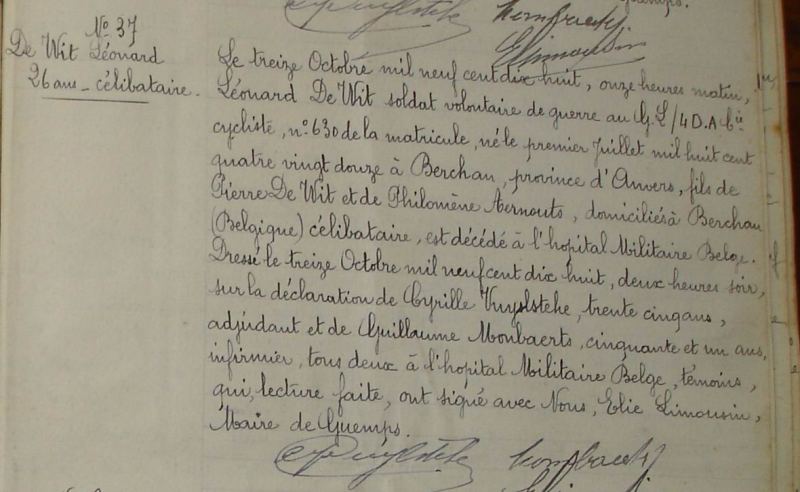 N° 37
De Wit Léonard
26 ans - célibataire.
Le treize Octobre mil neuf cent dix huit, onze heures matin,
Léonard De Wit soldat volontaire de guerre au G.L/4 D.A Cie
cycliste, n° 630 de la matricule, né le premier Juillet mil huit cent
quatre vingt douze à Berchau, province d'Anvers, fils de
Pierre De Wit et de Philomène Aernouts, domiciliés à Berchau
(Belgique) célibataire, est décédé à l'hopital Militaire Belge.
Dressé le treize Octobre mil neuf cent dix huit, deux heures soir,
sur la déclaration de Cyrille Vuylsteke, trente cinq ans,
adjudant et de Guillaume Monbaerts, cinquante et un ans,
infirmier, tous deux à l'hopital Militaire Belge, témoins,
qui, lecture faite, ont signé avec Nous, Elie Limousin,
Maire de Guemps.